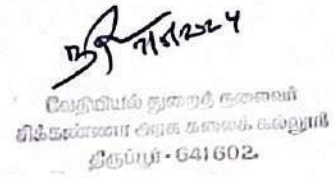 வேதியியல் துறைத் தலைவர்
சிக்கண்ணா அரசு கலைக் கல்லூரி
திருப்பூர் - 641 602.